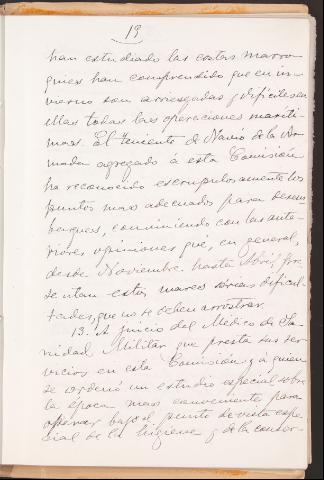 13
han estudiado las costas marro-
quíes han comprendido que en in-
vierno son arriesgadas y difíciles en
ellas todas las operaciones maríti-
mas. El Teniente de Navío de la Ar-
mada agregado á esta Comisión
ha reconocido escrupulosamente los
puntos mas adecuados para desem-
barques, conviniendo con las ante-
riores opiniones que, en general,
desde Noviembre hasta Abril, pre-
sentan estos mares serias dificul-
tades, que no se deben arrostrar.
13. A juicio del Médico de Sa-
nidad Militar que presta sus ser-
vicios en esta Comisión, y á quien
se ordenó un estudio especial sobre
la época mas conveniente para
operar bajo el punto de vista espe-
cial de la higiene y de la conser-